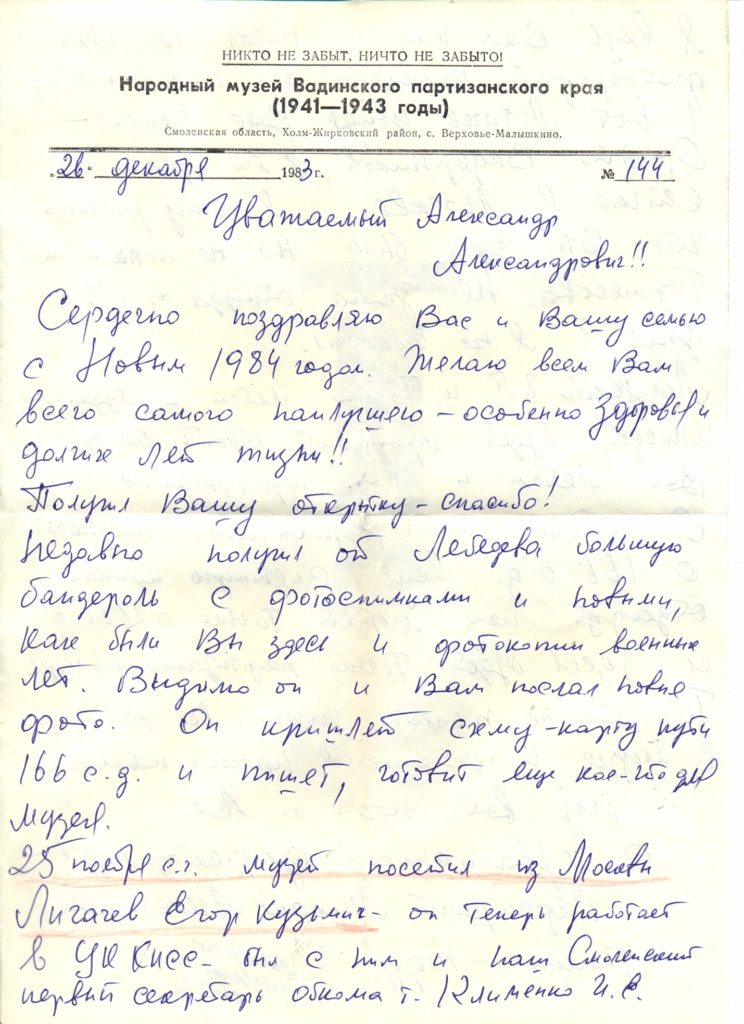 НИКТО НЕ ЗАБЫТ, НИЧТО НЕ ЗАБЫТО!
Народный музей Вадинского партизанского края
(1941—1943 годы)
Смоленская область, Холм-Жирковский район, с. Верховье-Малышкино.
„26" декабря 1983 г. № 144
Уважаемый Александр
Александрович!!
Сердечно поздравляю Вас и Вашу семью
с Новым 1984 годом. Желаю всем Вам
всего самого наилучшего – особенно здоровья и
долгих лет жизни!!
Получил Вашу открытку – спасибо!
Недавно получил от Лебедева большую
бандероль с фотоснимками и новыми,
как были Вы здесь и фотокопии военных
лет. Видимо он и Вам послал новые
фото. Он пришлет схему-карту пути
166 с.д. и пишет, готовит еще кое-что для
музея.
25 ноября с.г. музей посетил из Москвы
Лигачев Егор Кузьмич – он теперь работает
в ЦК КПСС – был с ним и наш Смоленский
первый секретарь обкома т. Клименко И.Е.